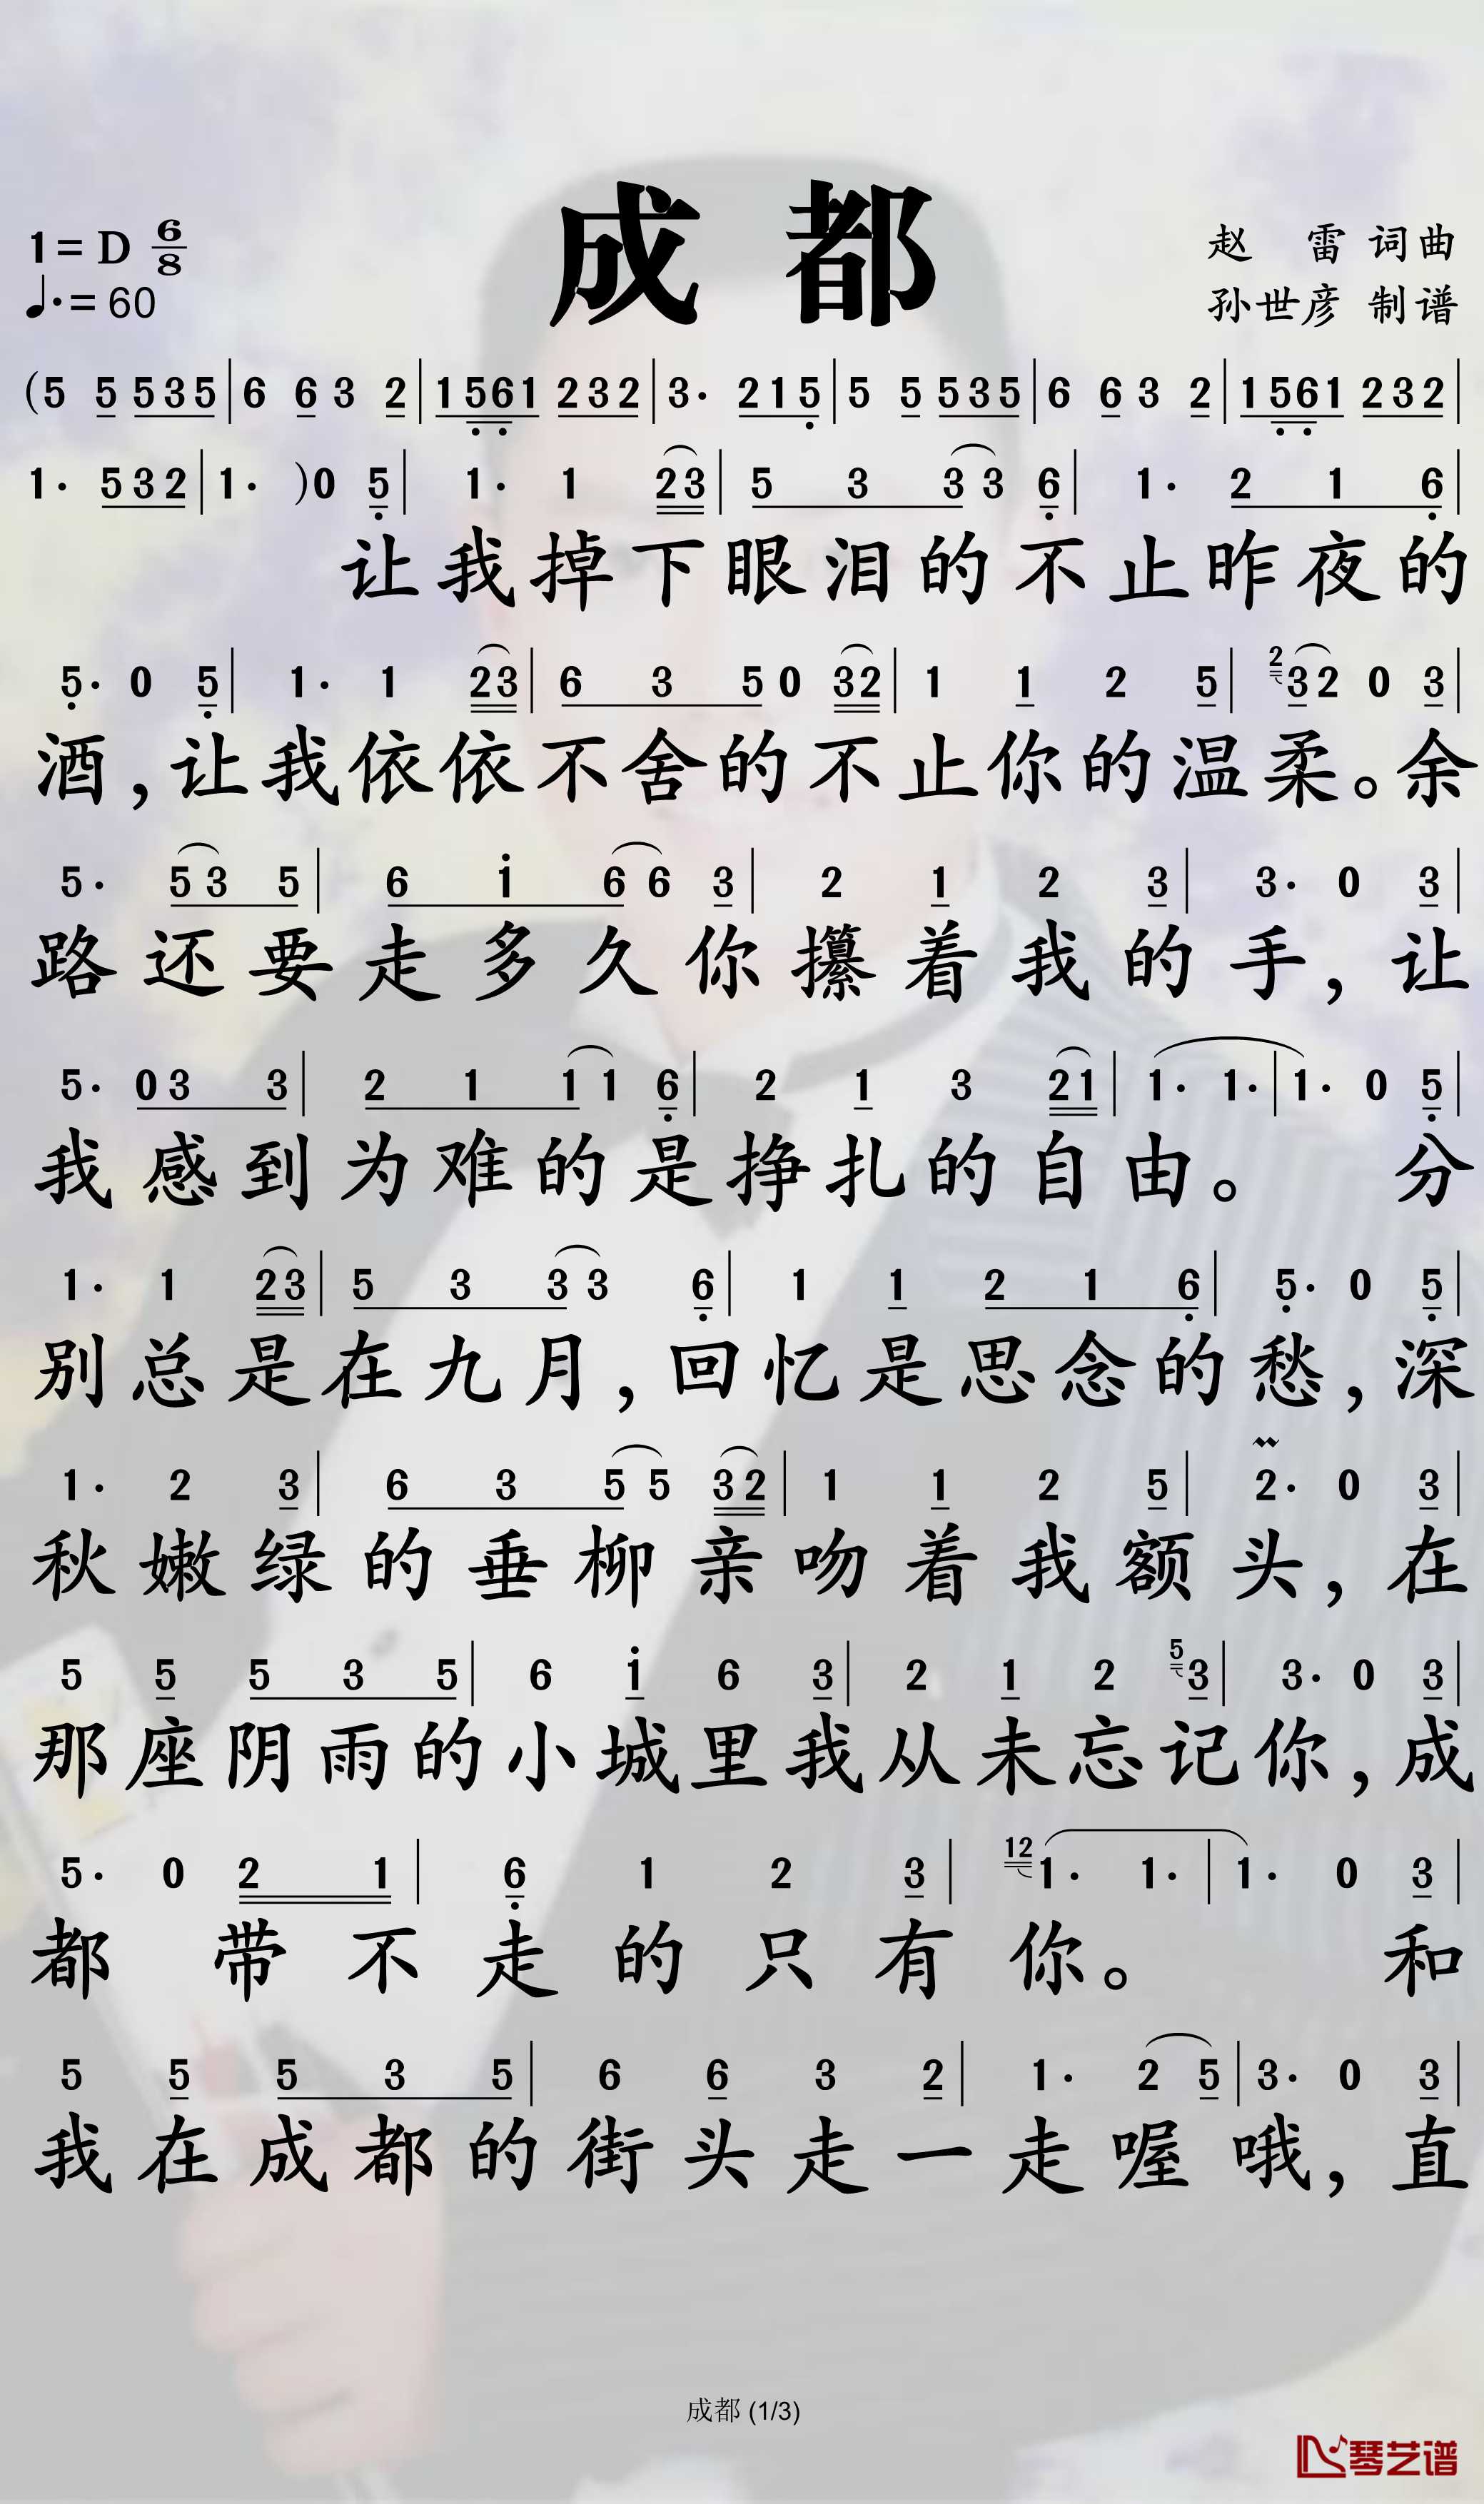 成 都
1=D 6/8
♩.=60
赵 雷 词曲
孙世彦 制谱
(5 5 5 3 5 | 6 6 3 2 | 1 5̣ 6̣ 1 2 3 2 | 3· 2 1 5̣ | 5 5 5 3 5 | 6 6 3 2 | 1 5̣ 6̣ 1 2 3 2 |
1· 5 3 2 | 1· )0 5̣ | 1· 1 2 3 | 5 3 3 3 6̣ | 1· 2 1 6̣ |
让我掉下眼泪的不止昨夜的
5̣· 0 5̣ | 1· 1 2 3 | 6 3 5 0 3 2 | 1 1 2 5 | 2 3 2 0 3 |
酒,让我依依不舍的不止你的温柔。余
5· 5 3 5 | 6 i 6 6 3 | 2 1 2 3 | 3· 0 3 |
路还要走多久你攥着我的手,让
5· 0 3 3 | 2 1 1 1 6̣ | 2 1 3 2 1 | 1· 1· | 1· 0 5̣ |
我感到为难的是挣扎的自由。 分
1· 1 2 3 | 5 3 3 3 6̣ | 1 1 2 1 6̣ | 5̣· 0 5̣ |
别总是在九月,回忆是思念的愁,深
1· 2 3 | 6 3 5 5 3 2 | 1 1 2 5 | 2· 0 3 |
秋嫩绿的垂柳亲吻着我额头,在
5 5 5 3 5 | 6 i 6 3 | 2 1 2 5 3 | 3· 0 3 |
那座阴雨的小城里我从未忘记你,成
5· 0 2 1 | 6̣ 1 2 3 | 12 1· 1· | 1· 0 3 |
都 带不走的只有你。 和
5 5 5 3 5 | 6 6 3 2 | 1· 2 5 | 3· 0 3 |
我在成都的街头走一走喔哦,直
成都 (1/3)
琴艺谱